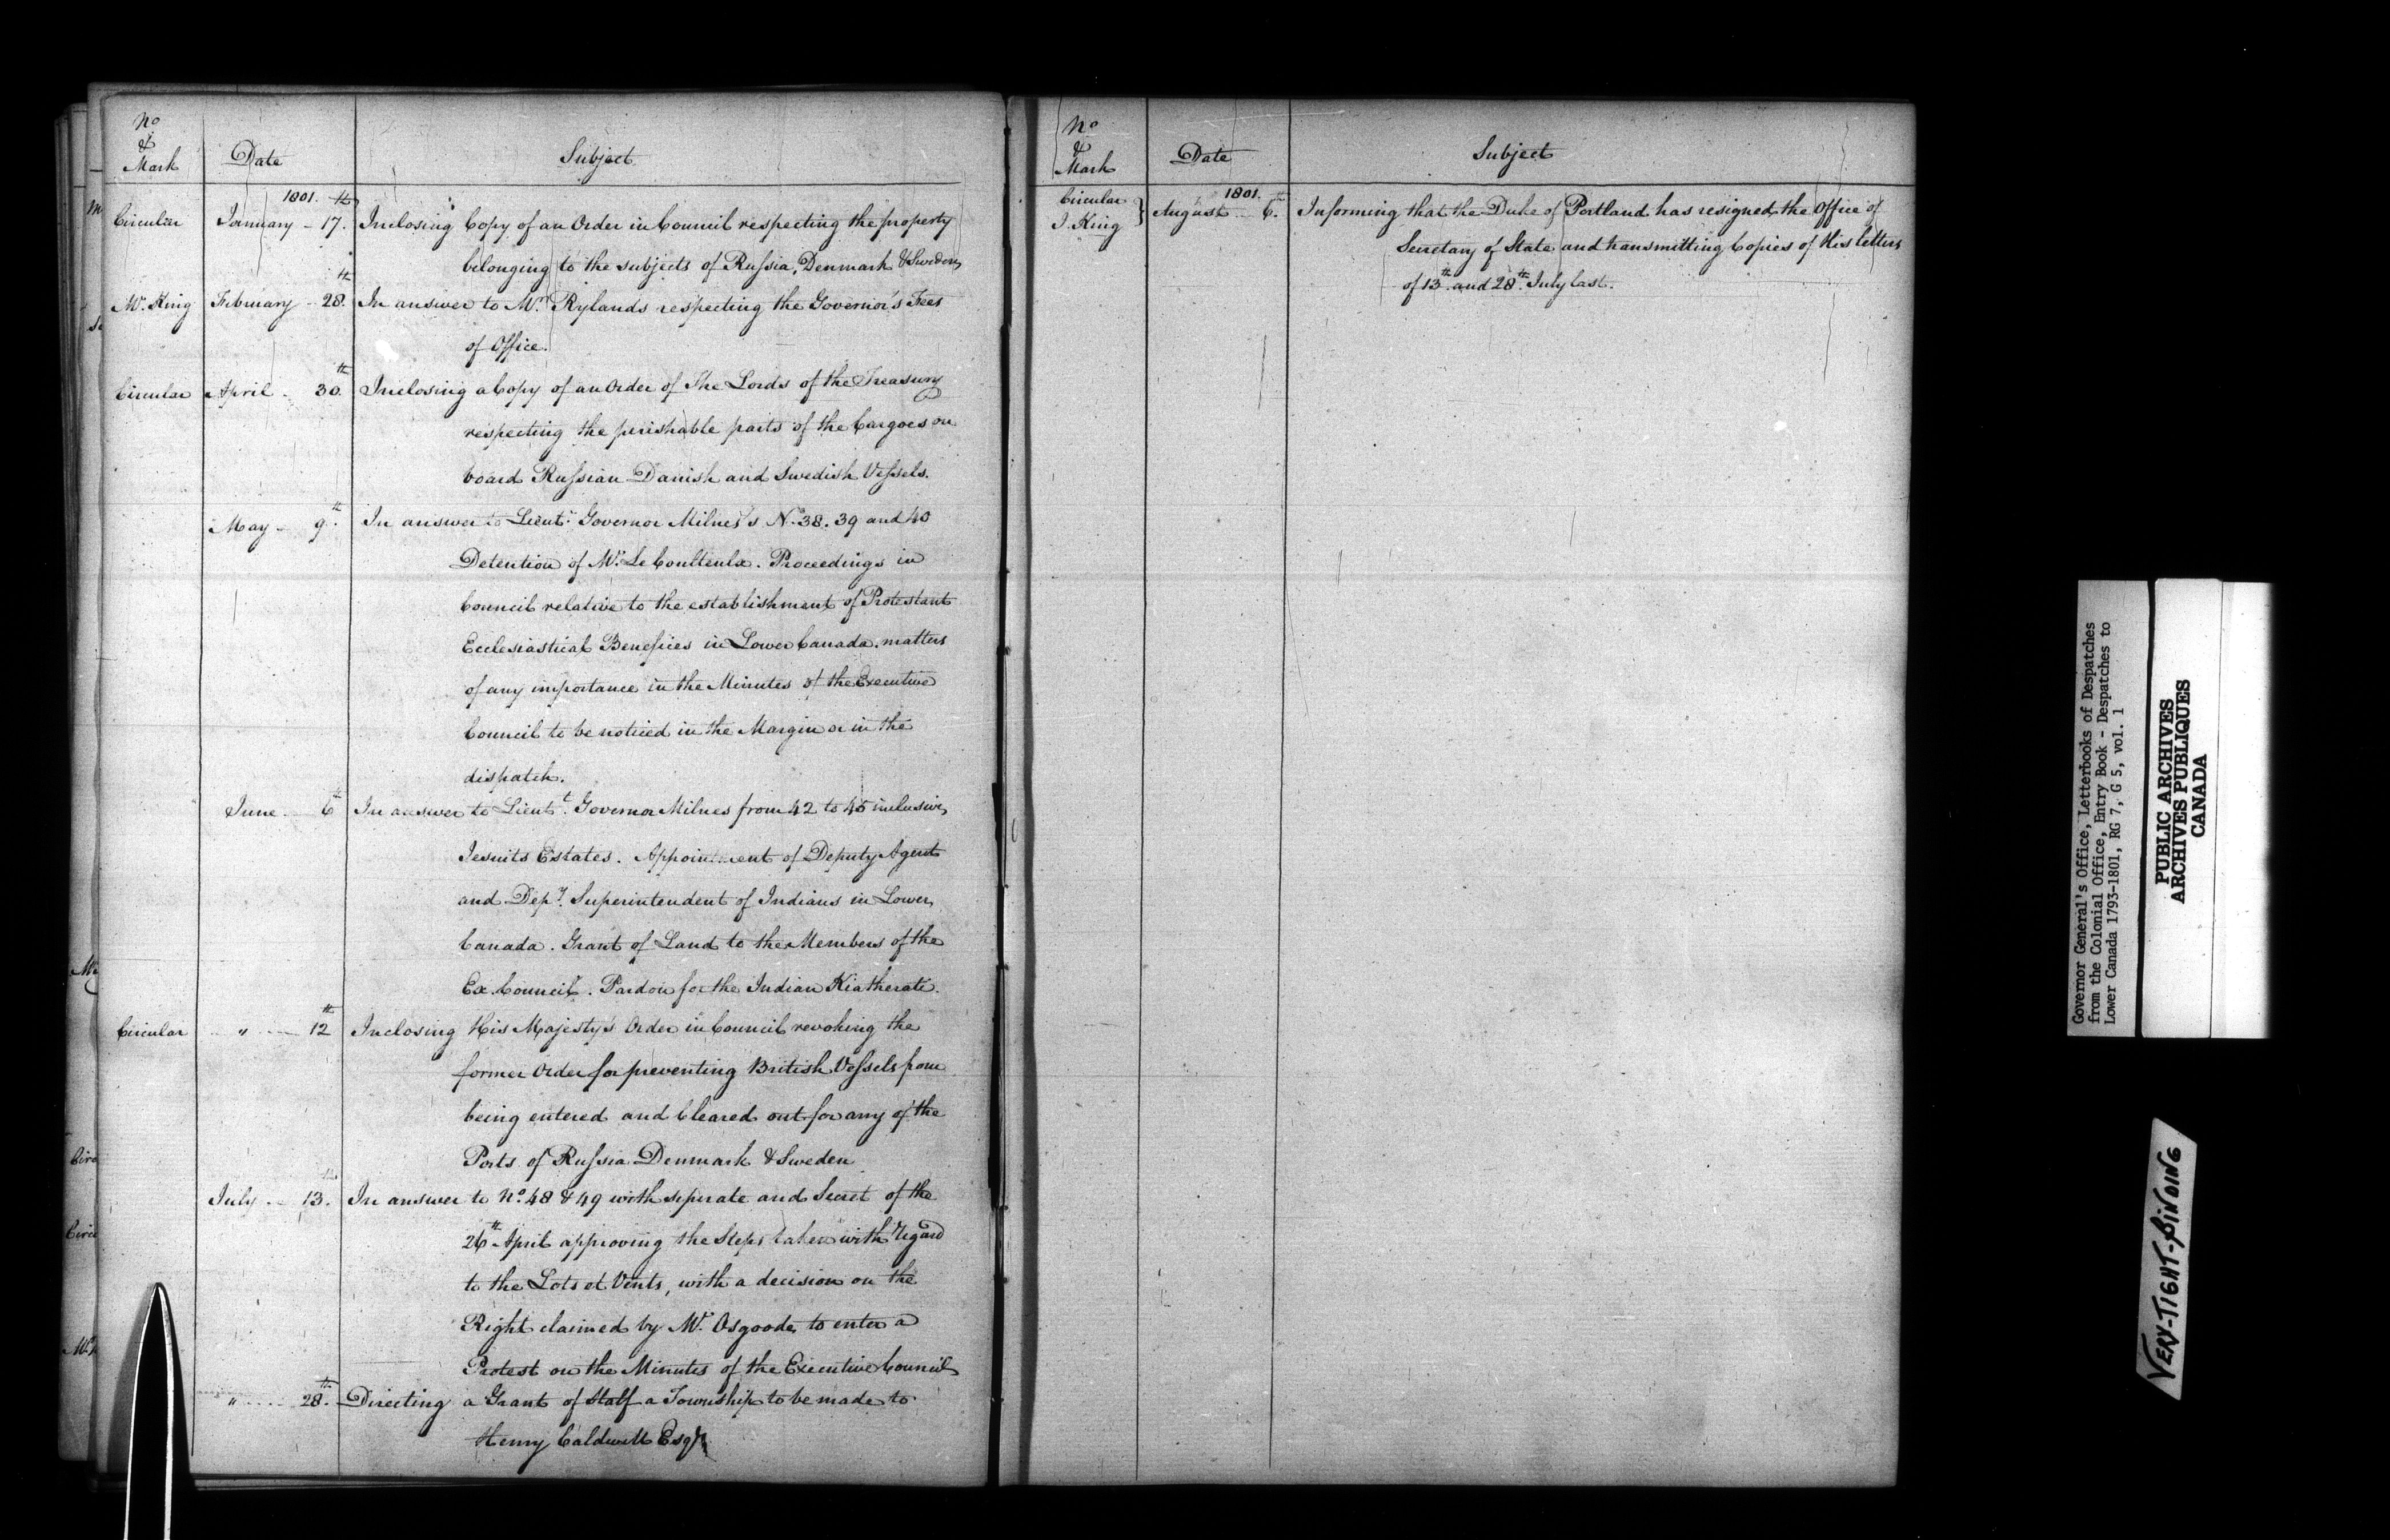 No
&
Mark
Date
Subject
1801.
Circular January - 17.th Inclosing Copy of an Order in Council respecting the property
belonging to the subjects of Russia, Denmark & Sweden
Mr. King February - 28.th In answer to Mr. Rylands respecting the Governor's Fees
of Office.
Circular April - 30.th Inclosing a Copy of an Order of The Lords of the Treasury
respecting the perishable parts of the Cargoes on
board Russian Danish and Swedish Vessels.
May - 9.th In answer to Lieut.t Governor Milnes's No. 38. 39 and 40
Detention of Mr. Le Coulteulx. Proceedings in
Council relative to the establishment of Protestant
Ecclesiastical Benefices in Lower Canada. matters
of any importance in the Minutes of the Executive
Council to be noticed in the Margin or in the
dispatch.
June - 6th In answer to Lieut.t Governor Milnes from 42 to 45 inclusive,
Jesuits Estates. Appointment of Deputy Agent
and Depy. Superintendent of Indians in Lower
Canada. Grant of Land to the Members of the
Ex. Council. Pardon for the Indian Kiatherate.
Circular " - 12th Inclosing His Majesty's Order in Council revoking the
former Order for preventing British Vessels from
being entered and Cleared out for any of the
Ports of Russia Denmark & Sweden
July - 13.th In answer to No. 48 & 49 with seperate and Secret of the
26th April approving the Steps taken with regard
to the Lots et Vents, with a decision on the
Right claimed by Mr. Osgoode, to enter a
Protest on the Minutes of the Executive Council
" - 28.th Directing a Grant of Half a Township to be made to
Henry Caldwell Esqr
No
&
Mark
Date
Subject
1801.
Circular
J. King } August - 6.th Informing that the Duke of Portland has resigned the Office of
Secretary of State and transmitting Copies of His letters
of 13th and 28th July last.
Governor General's Office, Letterbooks of Despatches
from the Colonial Office, Entry Book - Despatches to
Lower Canada 1793-1801, RG 7, G 5, vol. 1
PUBLIC ARCHIVES
ARCHIVES PUBLIQUES
CANADA
VERY-TIGHT-BINDING